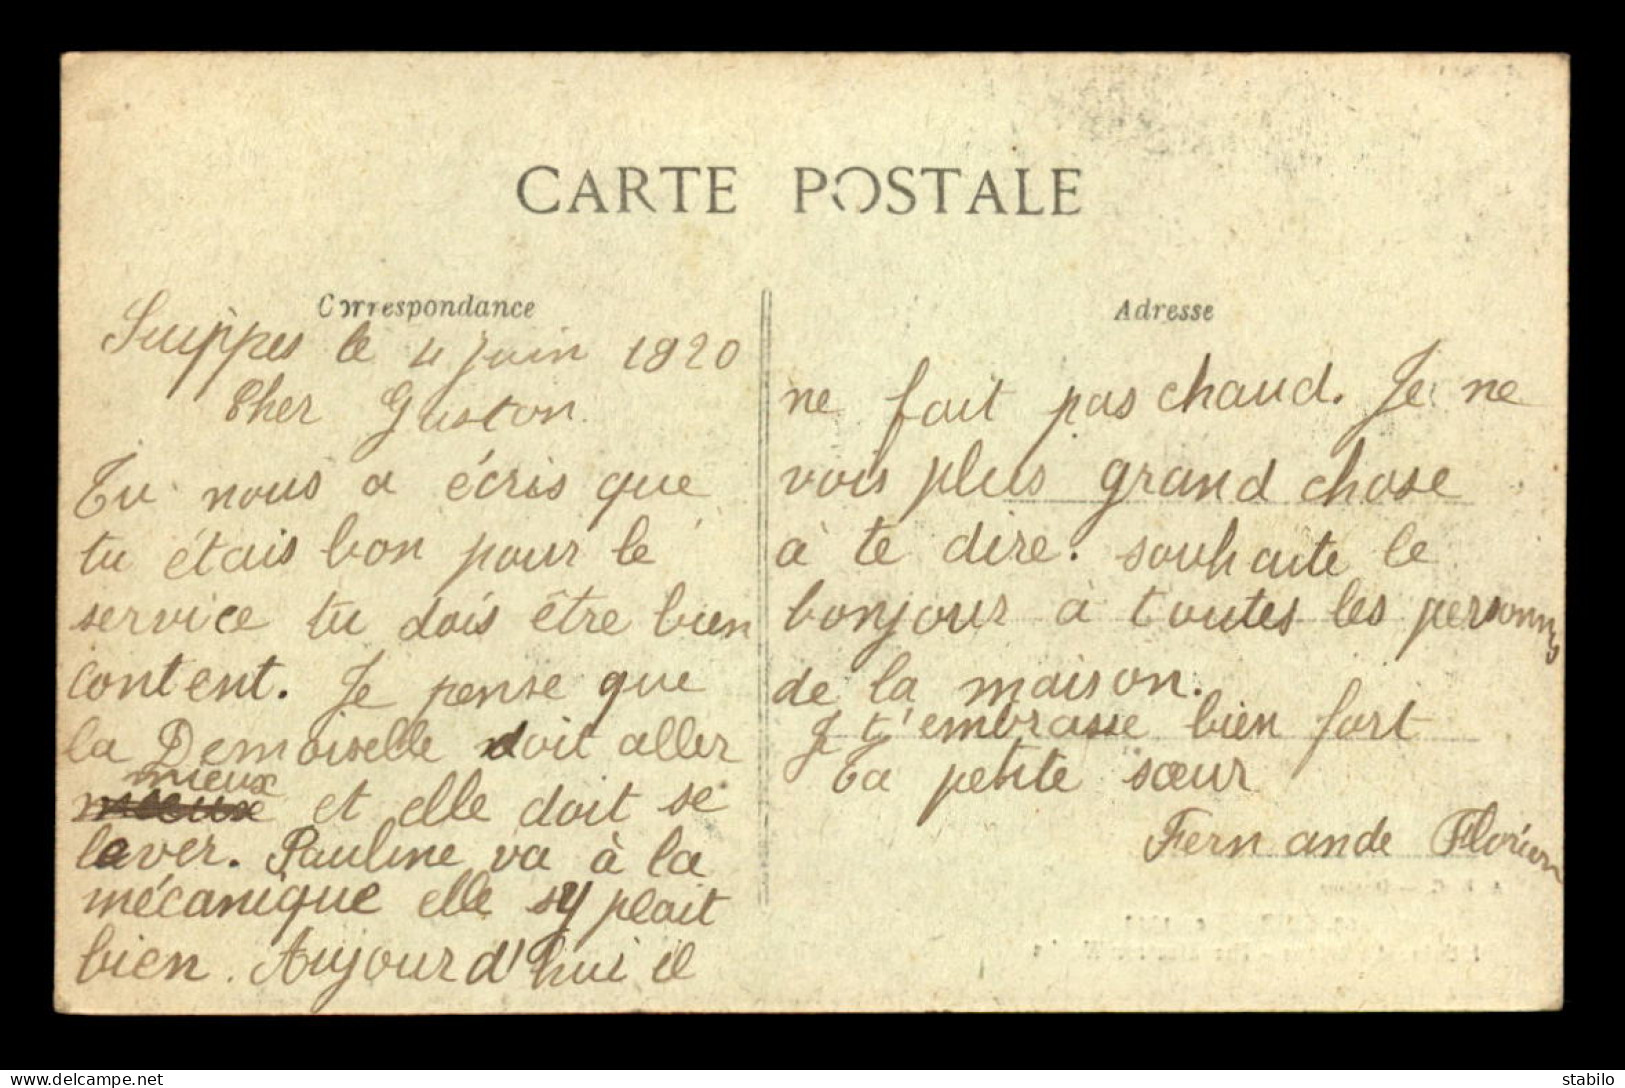 CARTE POSTALE
Correspondance
Suippes le 4 juin 1920
Cher Gaston.
Tu nous a écris que
tu étais bon pour le
service tu dois être bien
content. Je pense que
la Demoiselle doit aller
mieux
mieux et elle doit se
laver. Pauline va à la
mécanique elle sy plait
bien. Aujourd'hui il
Adresse
ne fait pas chaud. Je ne
vois plus grand chose
à te dire. souhaite le
bonjour à toutes les personnes
de la maison.
Je t'embrasse bien fort
Ta petite sœur
Fernande Florion
stabilo